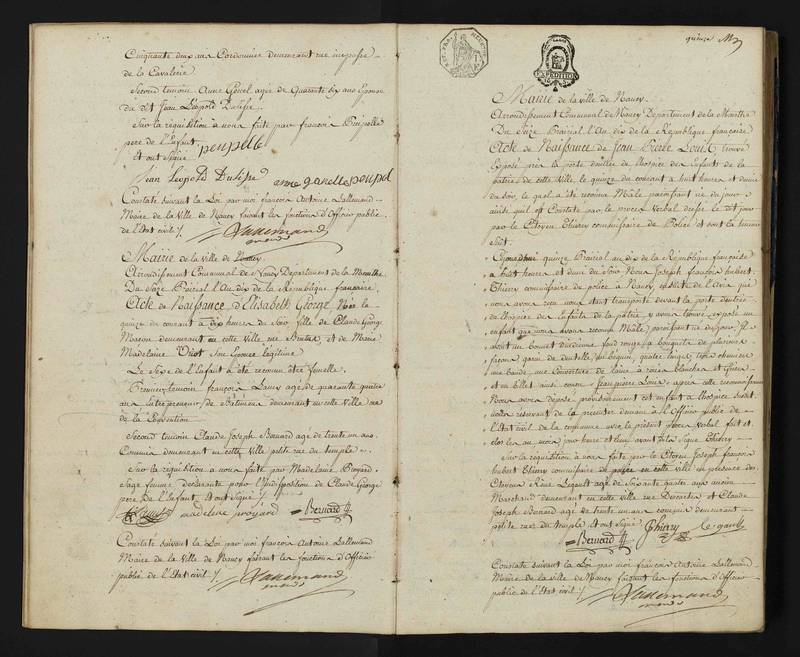 Cinquante deux ans Cordonnier demeurant rue impasse
de la Cavalerie
Second temoin Anne agée de Quarante six ans Epouse
du dit Jean Léopold
Sur la réquisition à nous faite par françois
pere de l'Enfant
Et ont signé
Jean Leopold
Constaté suivant la Loi par moi françois Antoine Lallemand
Maire de la Ville de Nancy faisant les fonction d'Officier public
de l'Etat civil /.
Lallemand
maire
Mairie de la ville de Nancy.
Arrondissement Communal de Nancy Departement de la Meurthe
Du Seize Prairial l'An dix de la République française
Acte de Naissance, d'Elisabeth George Née le
quinze du courant à dix heures du Soir ville de Claude George
Maçon demeurant en cette Ville rue et de Marie
Madelaine son Epouse légitime
Le Sexe de l'Enfant a été reconnu être femelle.
Premier temoin françois agé de quarante quatre
ans entrepreneur de Bâtimens demeurant en cette Ville rue
de la
Second temoin Claude Joseph Bernard agé de trente un ans
Commis demeurant en cette Ville petite rue du temple
Sur la réquisition à nous faite par Madelaine
Sage femme Déclarante pour l'Indisposition de Claude George
pere de l'Enfant Et ont Signé /.
madeleine
Bernard
Constaté suivant la Loi par moi françois Antoine Lallemand
Maire de la Ville de Nancy faisant les fonction d'Officier
public de l'Etat civil /.
Lallemand
maire
quinze
EXPEDITION
Mairie de la ville de Nancy.
Arrondissement Communal de Nancy Departement de la Meurthe
Du Seize Prairial l'An dix de la République française
Acte de Naissance de Jean Pierre Louis trouvé
Exposé près la porte d'entrée de l'hospice des Enfants de la
patrie de cette Ville le quinze du courant à huit heures et demie
du soir, le quel a été reconnu Mâle paroissant né du jour
ainsi qu'il est Constaté par le procès verbal dressé le dit jour
par le Citoyen Thiery commissaire de Police et dont la teneur
suit.
Cejourd'hui quinze Prairial an dix de la République française
à huit heures et demi du soir Nous Joseph françois hubert
Thiery commissaire de police à Nancy, ensuite de l'avis que
nous avons reçu nous étant transporté devant la porte d'entrée
de l'hospice des Enfants de la patrie y avons trouvé exposé un
enfant que nous avons reconnu Mâle, paroissant né du jour, Il
avoit un bonnet d'indienne fond rouge à bouquets de plusieurs
façons garni de dentelle, un béguin, quatre langes, trois chemises
une bande, une couverture de laine à raies blanches et
et un billet ainsi conçu Jean pierre Louis, après cette reconnoissance
Nous avons déposé provisoirement cet enfant à l'hospice
de la présenter demain à l'Officier public de
l'Etat civil de la commune avec le présent procès verbal fait et
clos les an mois jour heure et lieu avant dits Signé Thiery
Sur la réquisition à nous faite par le Citoyen Joseph françois
hubert Thiery commissaire de police en cette ville en présence des
Citoyens Réné Legault agé de Soixante quatre ans ancien
Marchand demeurant en cette Ville rue Descartes et Claude
Joseph Bernard agé de trente un ans commis demeurant
petite rue du temple Et ont Signé
Thiery
Legault
Bernard
Constaté suivant la Loi par moi françois Antoine Lallemand
Maire de la ville de Nancy faisant les fonction d'Officier
public de l'Etat civil /.
Lallemand
maire